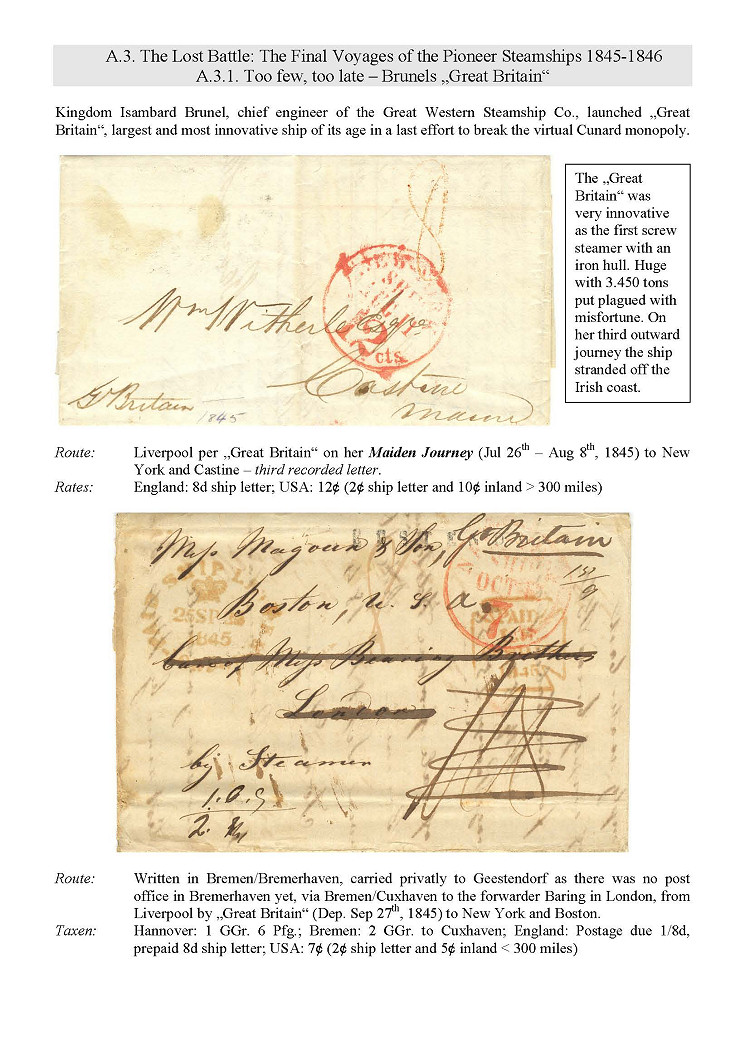 A.3. The Lost Battle: The Final Voyages of the Pioneer Steamships 1845-1846
A.3.1. Too few, too late – Brunels „Great Britain“
Kingdom Isambard Brunel, chief engineer of the Great Western Steamship Co., launched „Great
Britain“, largest and most innovative ship of its age in a last effort to break the virtual Cunard monopoly.
The „Great
Britain“ was
very innovative
as the first screw
steamer with an
iron hull. Huge
with 3.450 tons
put plagued with
misfortune. On
her third outward
journey the ship
stranded off the
Irish coast.
8
Wm Witherle Esqre
cts
Castine
Maine
Gt Britain
1845
Route: Liverpool per „Great Britain“ on her Maiden Journey (Jul 26th – Aug 8th, 1845) to New
York and Castine – third recorded letter.
Rates: England: 8d ship letter; USA: 12¢ (2¢ ship letter and 10¢ inland > 300 miles)
Mess Magoun & Son, Gt Britain
Boston, U. S. A.
SHIP
OCT
7
1845
PAID
Care of Mess Bearing Brothers
London
by Steamer
Route: Written in Bremen/Bremerhaven, carried privatly to Geestendorf as there was no post
office in Bremerhaven yet, via Bremen/Cuxhaven to the forwarder Baring in London, from
Liverpool by „Great Britain“ (Dep. Sep 27th, 1845) to New York and Boston.
Taxen: Hannover: 1 GGr. 6 Pfg.; Bremen: 2 GGr. to Cuxhaven; England: Postage due 1/8d,
prepaid 8d ship letter; USA: 7¢ (2¢ ship letter and 5¢ inland < 300 miles)